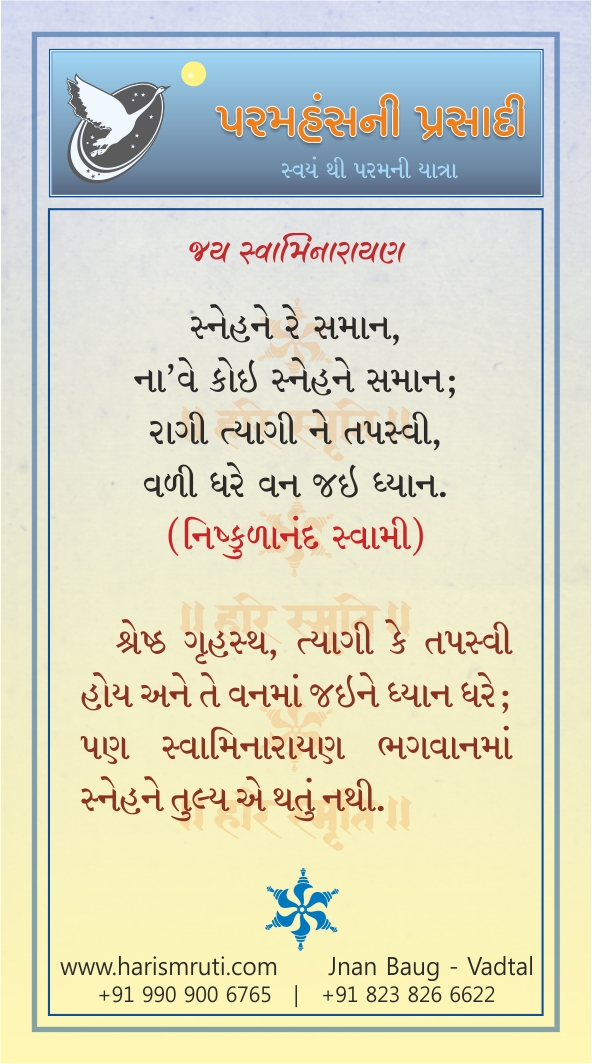 પરમહંસની પ્રસાદી
સ્વયં થી પરમની યાત્રા
જય સ્વામિનારાયણ
સ્નેહને રે સમાન,
ના'વે કોઇ સ્નેહને સમાન;
રાગી ત્યાગી ને તપસ્વી,
વળી ધરે વન જઇ ધ્યાન.
(નિષ્કુળાનંદ સ્વામી)
શ્રેષ્ઠ ગૃહસ્થ, ત્યાગી કે તપસ્વી
હોય અને તે વનમાં જઇને ધ્યાન ધરે;
પણ સ્વામિનારાયણ ભગવાનમાં
સ્નેહને તુલ્ય એ થતું નથી.
॥ हरि स्मृति ॥
॥ हरि स्मृति ॥
॥ हरि स्मृति ॥
www.harismruti.com Jnan Baug - Vadtal
+91 990 900 6765 | +91 823 826 6622